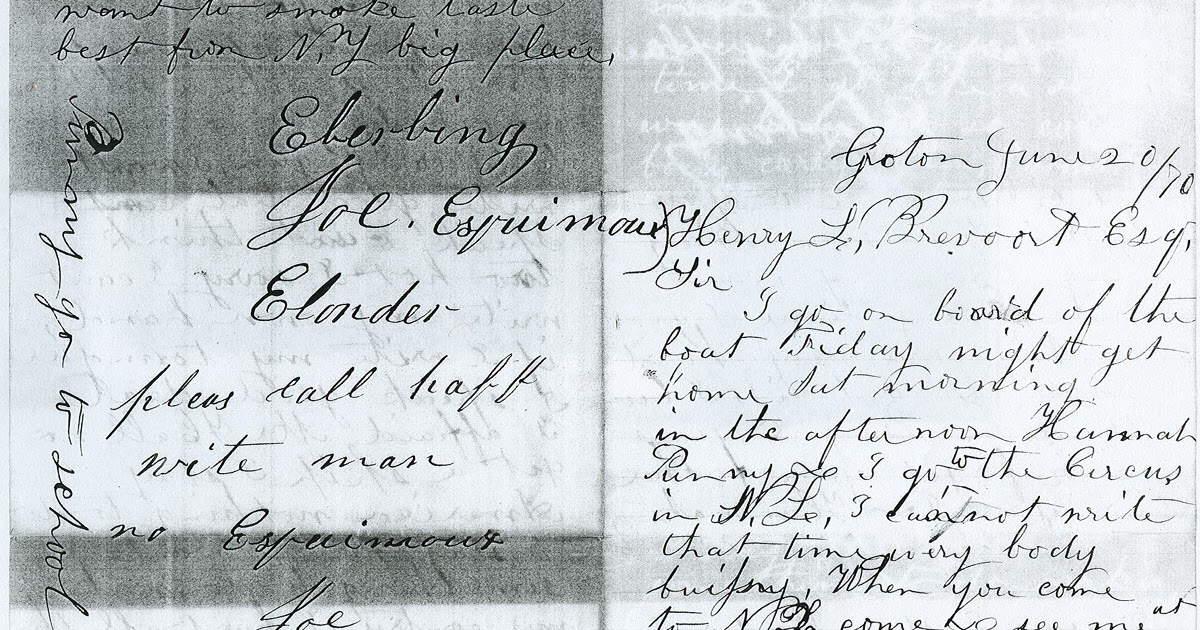 want to smoke taste
best from N.Y big place,
Eberbing
Joe. Esquimoux
Elonder
pleas call haff
write man
no Esquimoux
Joe
Punny go to school
Groton June 20/70
Henry L, Brevoort Esq,
Sir
I go on board of the
boat Friday night get
home Sat morning
in the afternoon Hannah
Punny & I go to the Circus
in N. L., I cannot write
that time very body
buissy, When you come
to N.L. come & see me
at